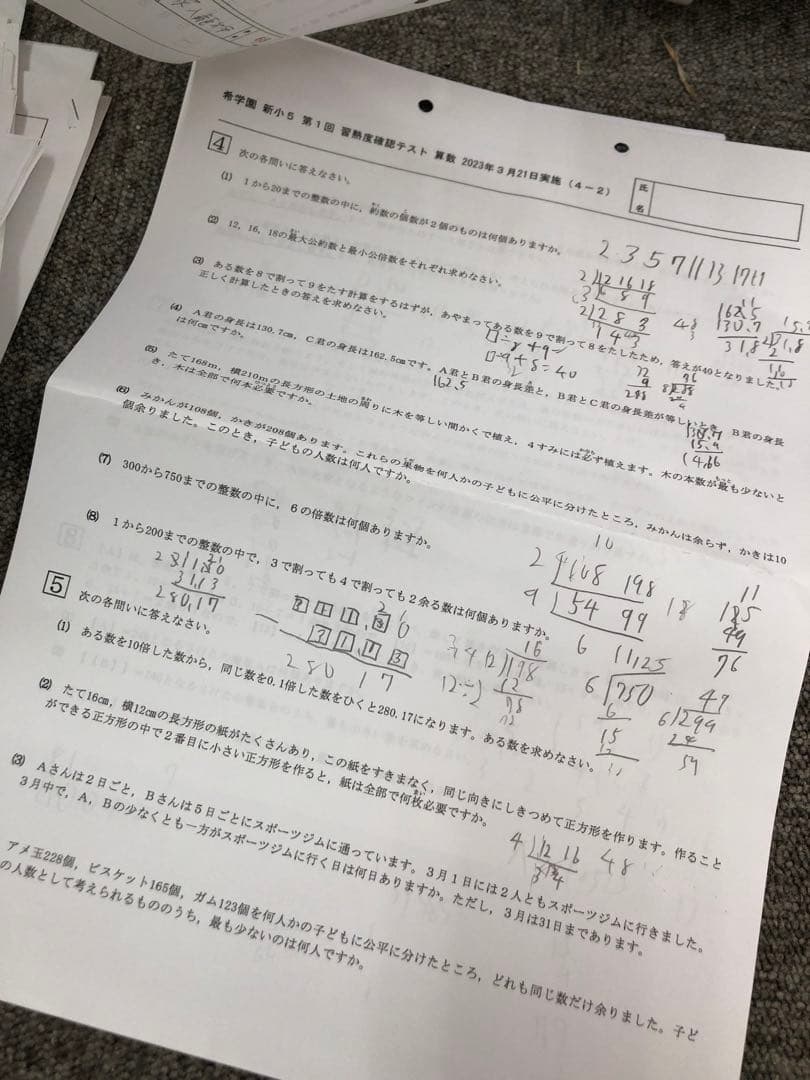 希学園 新小5 第1回 習熟度確認テスト 算数 2023年3月21日実施（4－2）
氏名
4 次の各問いに答えなさい。
(1) 1から20までの整数の中に，約数の個数が2個のものは何個ありますか。
2 3 5 7 11 13 17 19
(2) 12，16，18の最大公約数と最小公倍数をそれぞれ求めなさい。
(3) ある数を8で割って9をたす計算をするはずが，あやまってある数を9で割って8をたしたため，答えが40となりました。
正しく計算したときの答えを求めなさい。
□÷8+9
□÷9+8=40
(4) A君の身長は130.7cm，C君の身長は162.5cmです。A君とB君の身長差と，B君とC君の身長差が等しいとき，B君の身長
は何cmですか。
162.5
(5) たて168m，横210mの長方形の土地の周りに木を等しい間かくで植え，4すみには必ず植えます。木の本数が最も少ないと
き，木は全部で何本必要ですか。
(6) みかんが108個，かきが208個あります。これらの果物を何人かの子どもに公平に分けたところ，みかんは余らず，かきは10
個余りました。このとき，子どもの人数は何人ですか。
(7) 300から750までの整数の中に，6の倍数は何個ありますか。
(8) 1から200までの整数の中で，3で割っても4で割っても2余る数は何個ありますか。
2 108 198
9 54 99
18
6 11
5 次の各問いに答えなさい。
280.17
(1) ある数を10倍した数から，同じ数を0.1倍した数をひくと280.17になります。ある数を求めなさい。
(2) たて16cm，横12cmの長方形の紙がたくさんあり，この紙をすきまなく，同じ向きにしきつめて正方形を作ります。作ること
ができる正方形の中で2番目に小さい正方形を作ると，紙は全部で何枚必要ですか。
4 12 16 48
(3) Aさんは2日ごと，Bさんは5日ごとにスポーツジムに通っています。3月1日には2人ともスポーツジムに行きました。
3月中で，A，Bの少なくとも一方がスポーツジムに行く日は何日ありますか。ただし，3月は31日まであります。
アメ玉228個，ビスケット165個，ガム123個を何人かの子どもに公平に分けたところ，どれも同じ数だけ余りました。子ど
の人数として考えられるもののうち，最も少ないのは何人ですか。